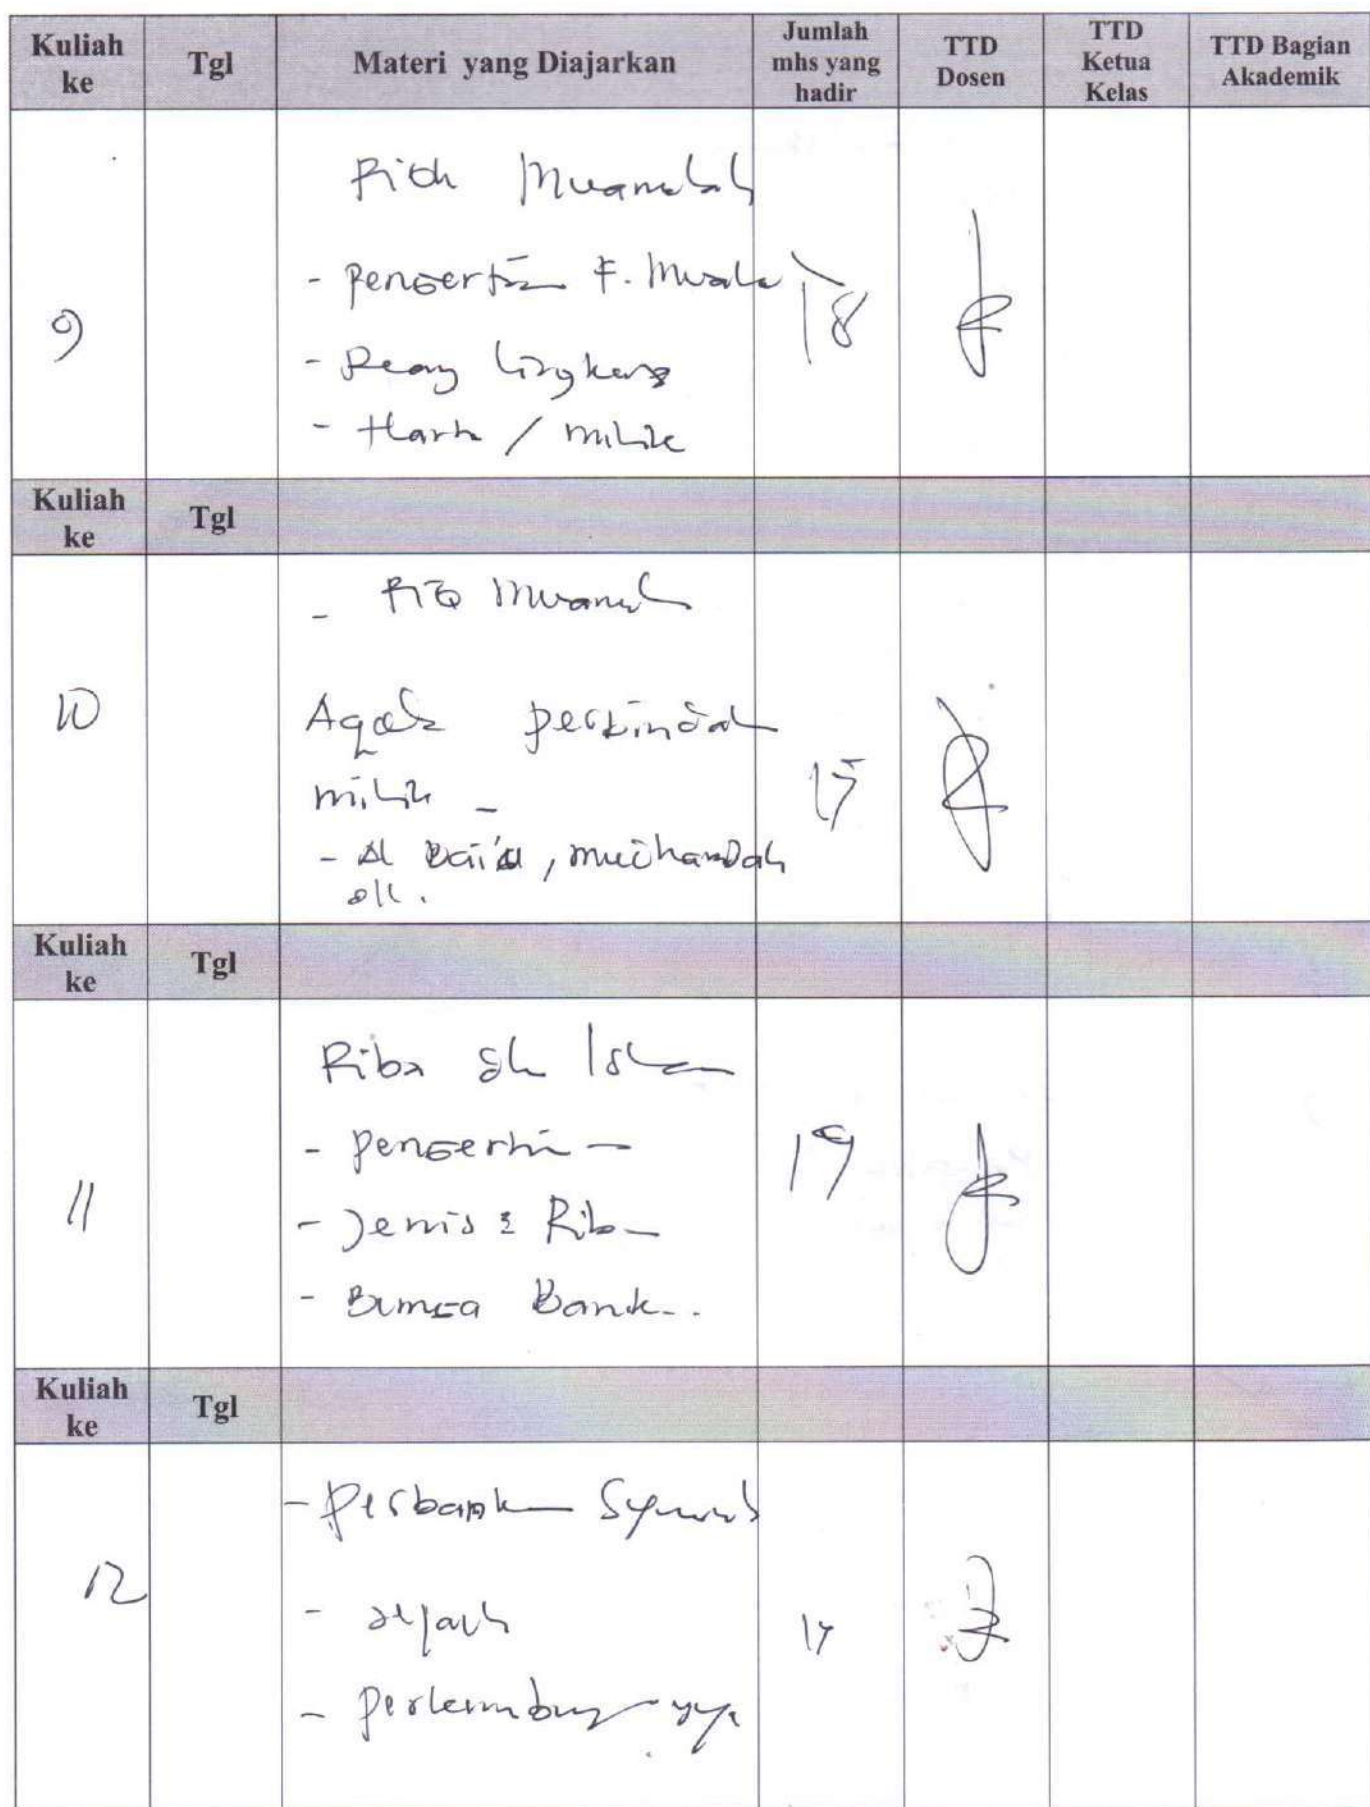 Kuliah ke Tgl Materi yang Diajarkan Jumlah mhs yang hadir TTD Dosen TTD Ketua Kelas TTD Bagian Akademik
9
Fiqh Muamalah
- Pengertian F. Muala
- Ruang lingkung
- Harta / milik
18
Kuliah ke Tgl
10
- Fiq Muamalah
Aqad perpindah
milik -
- Al Bai'a, mudharabah
dll.
Kuliah ke Tgl
11
Riba dlm Islam
- Pengertian
- Jenis2 Riba
- Bunga Bank..
19
Kuliah ke Tgl
12
- Perbankan Syariah
- sejarah
- Perkembangannya
17